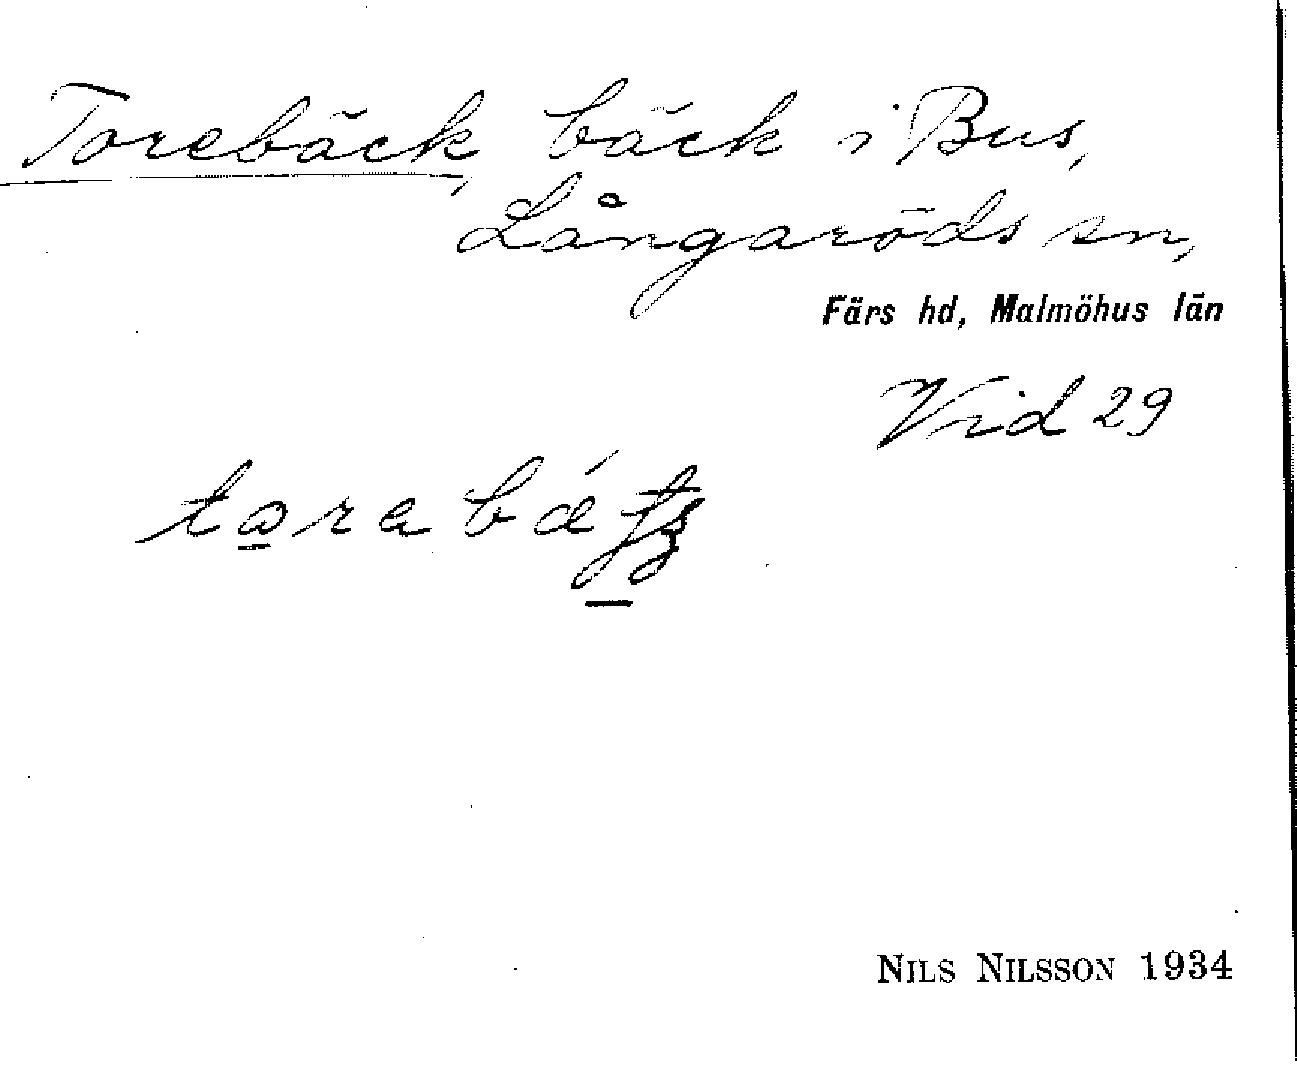 Torebäck, bäck i Bus,
Långaröds sn,
Färs hd, Malmöhus län
Vid 29
NILS NILSSON 1934